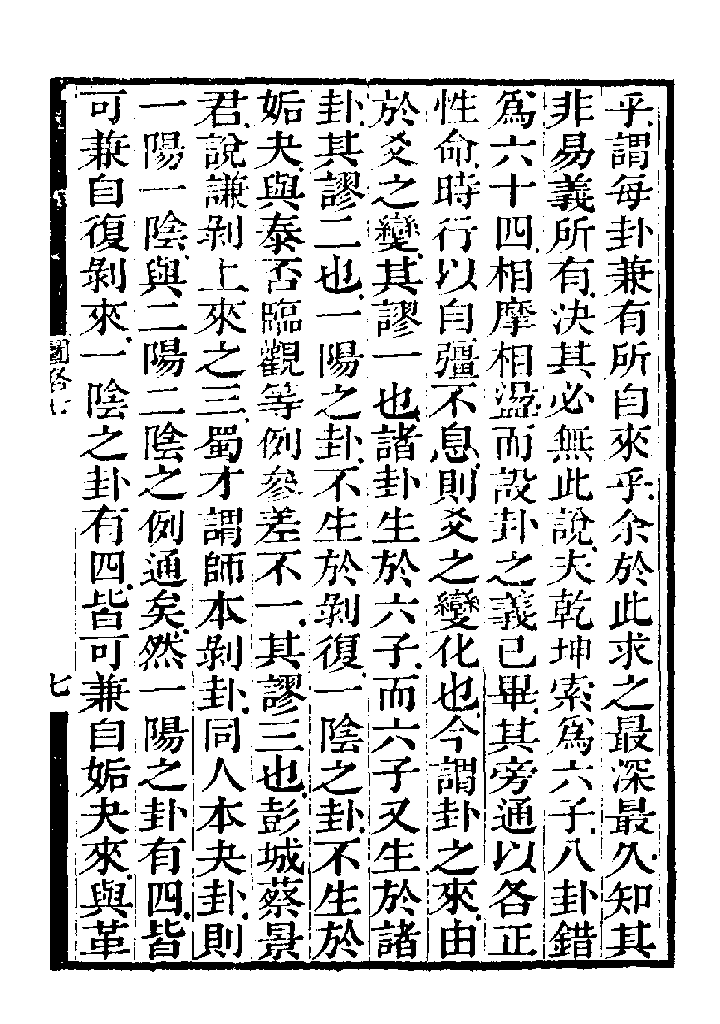 乎謂每卦兼有所自來乎余於此求之最深最久知其
非易義所有決其必無此說夫乾坤索爲六子八卦錯
爲六十四相摩相盪而設卦之義已畢其旁通以各正
性命時行以自彊不息則爻之變化也今謂卦之來由
於爻之變其謬一也諸卦生於六子而六子又生於諸
卦其謬二也一陽之卦不生於剝復一陰之卦不生於
姤夬與泰否臨觀等例參差不一其謬三也彭城蔡景
君說謙剝上來之三蜀才謂師本剝卦同人本夬卦則
一陽一陰與二陽二陰之例通矣然一陽之卦有四皆
可兼自復剝來一陰之卦有四皆可兼自姤夬來與革
七